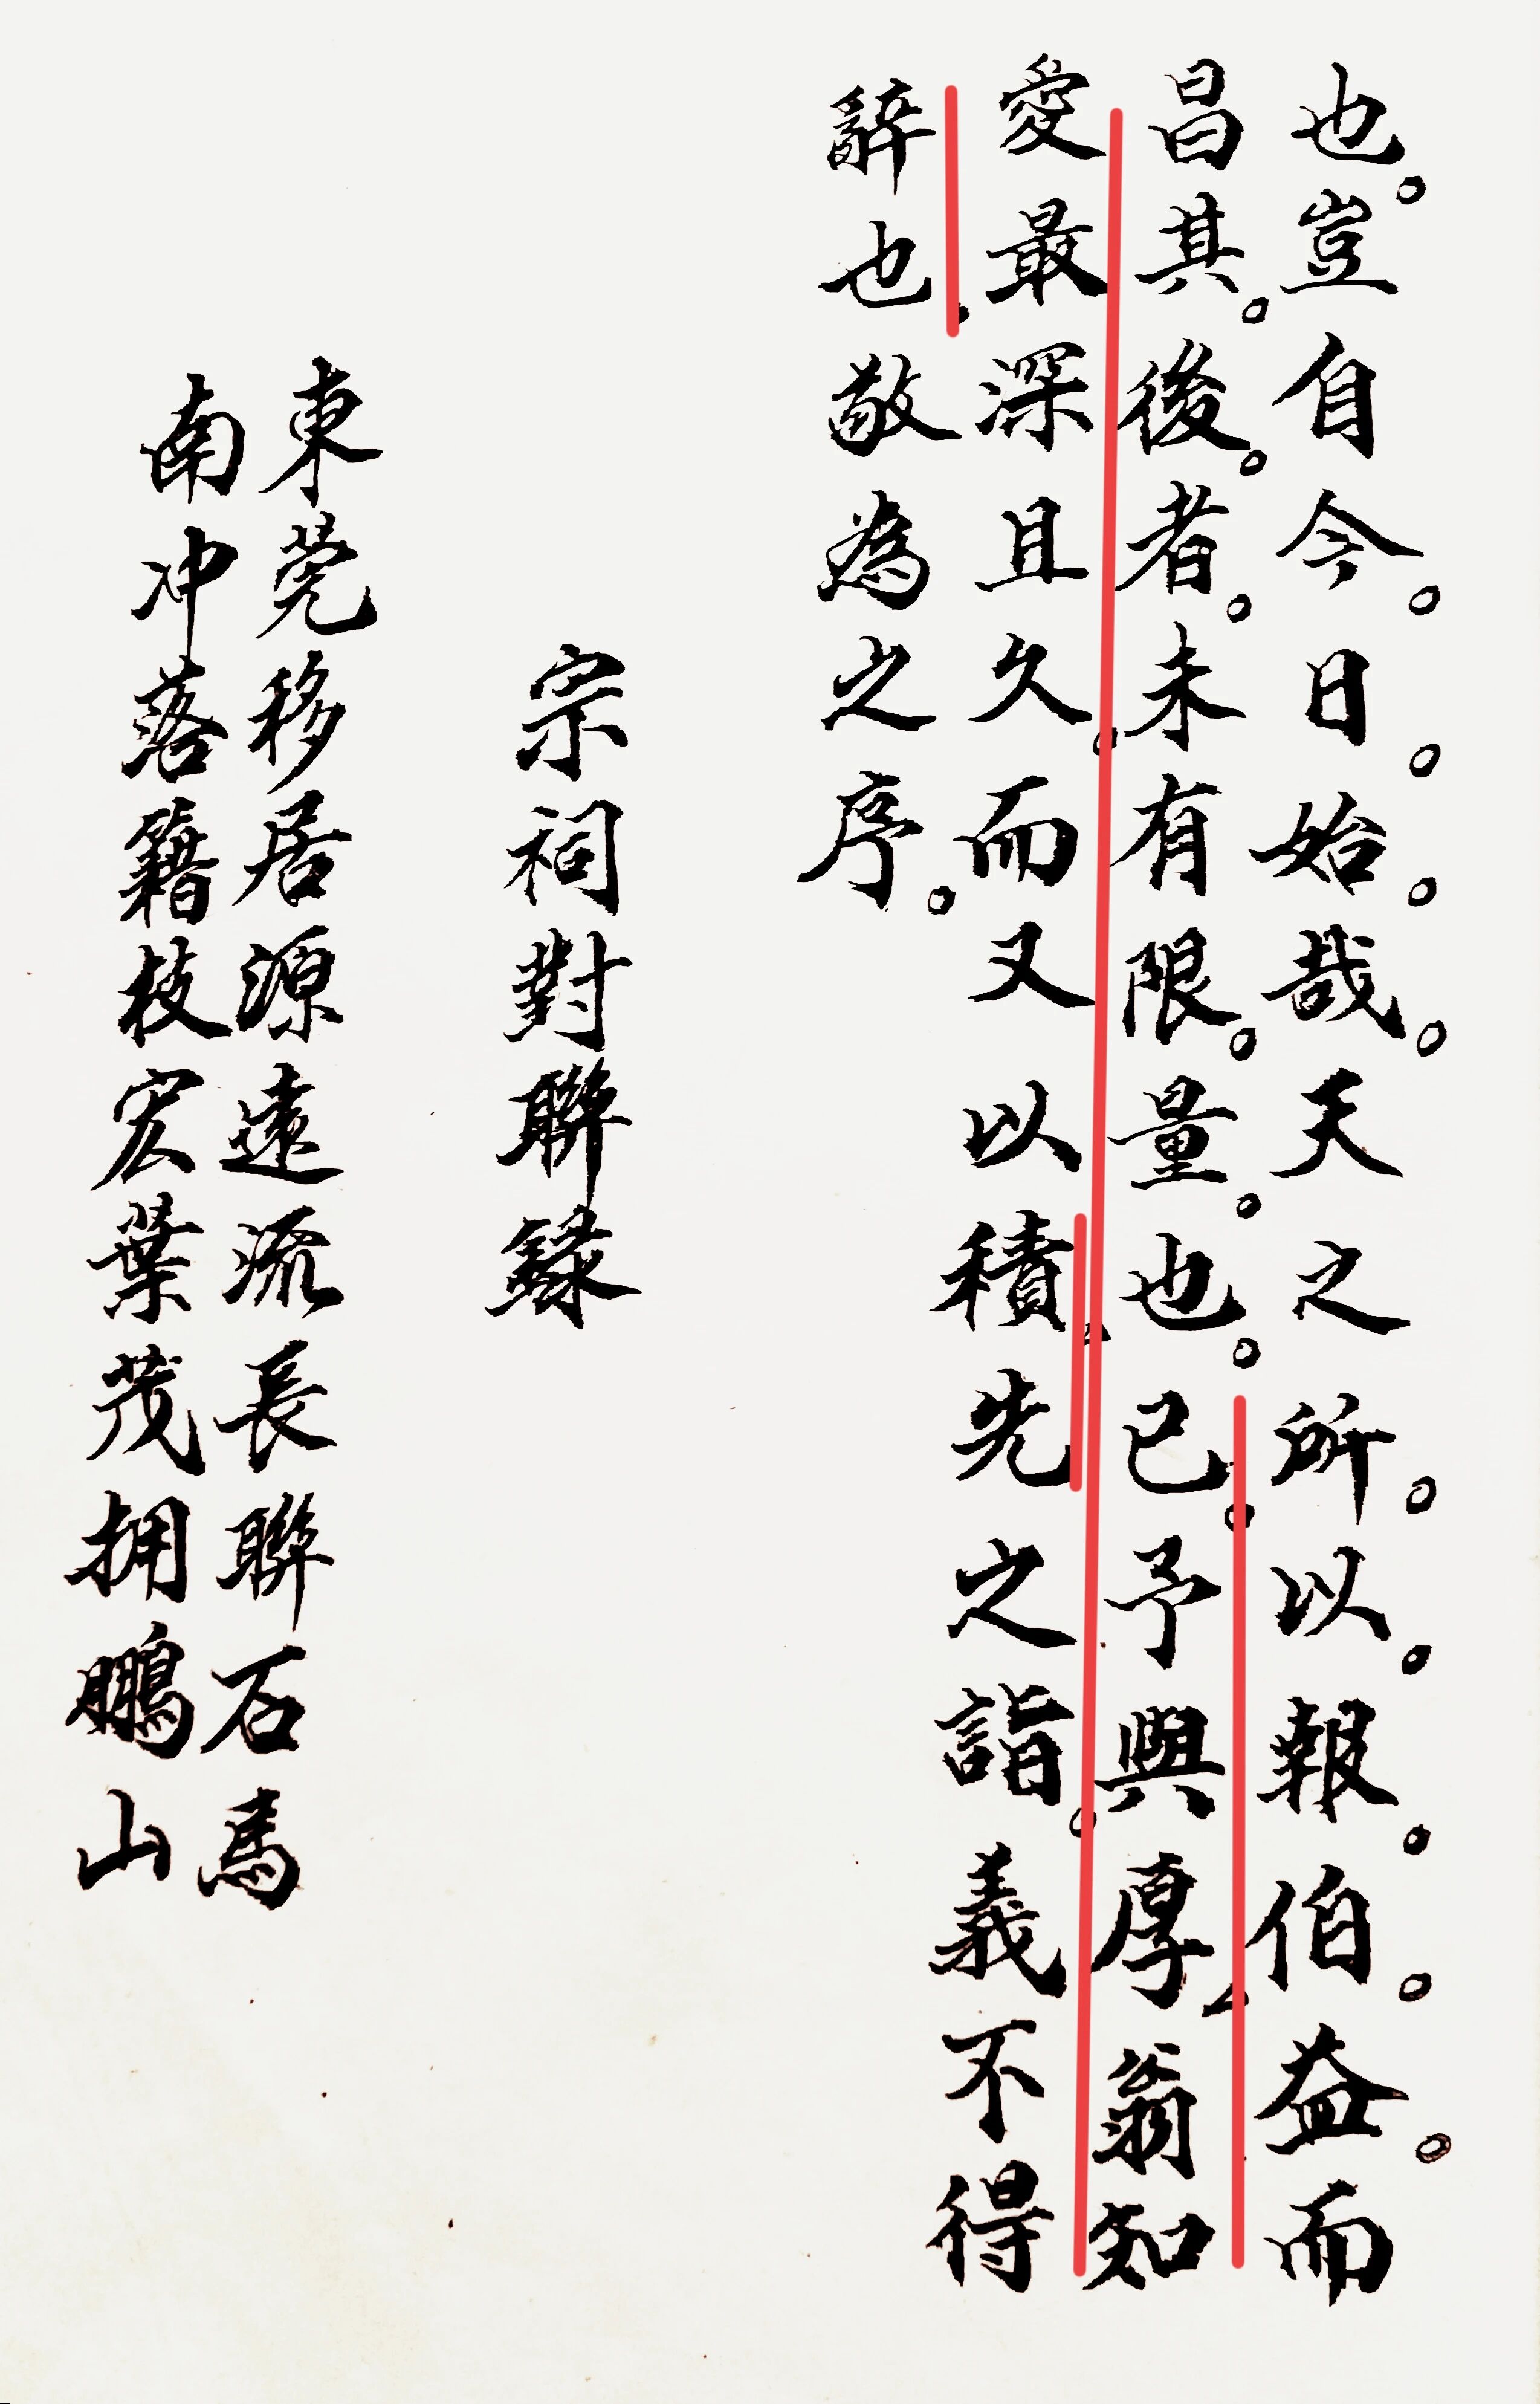 也。豈自今。日。始。哉。天之所。以。報。伯。益。而
昌其。後。者。未有限。量。也。已。予與厚翁知
愛最深且久。而又以積。先之詣。義不得
辭也。敬為之序。
宗祠對聯錄
東莞移居源遠流長聯石馬
南冲落籍枝宏葉茂拥鵬山